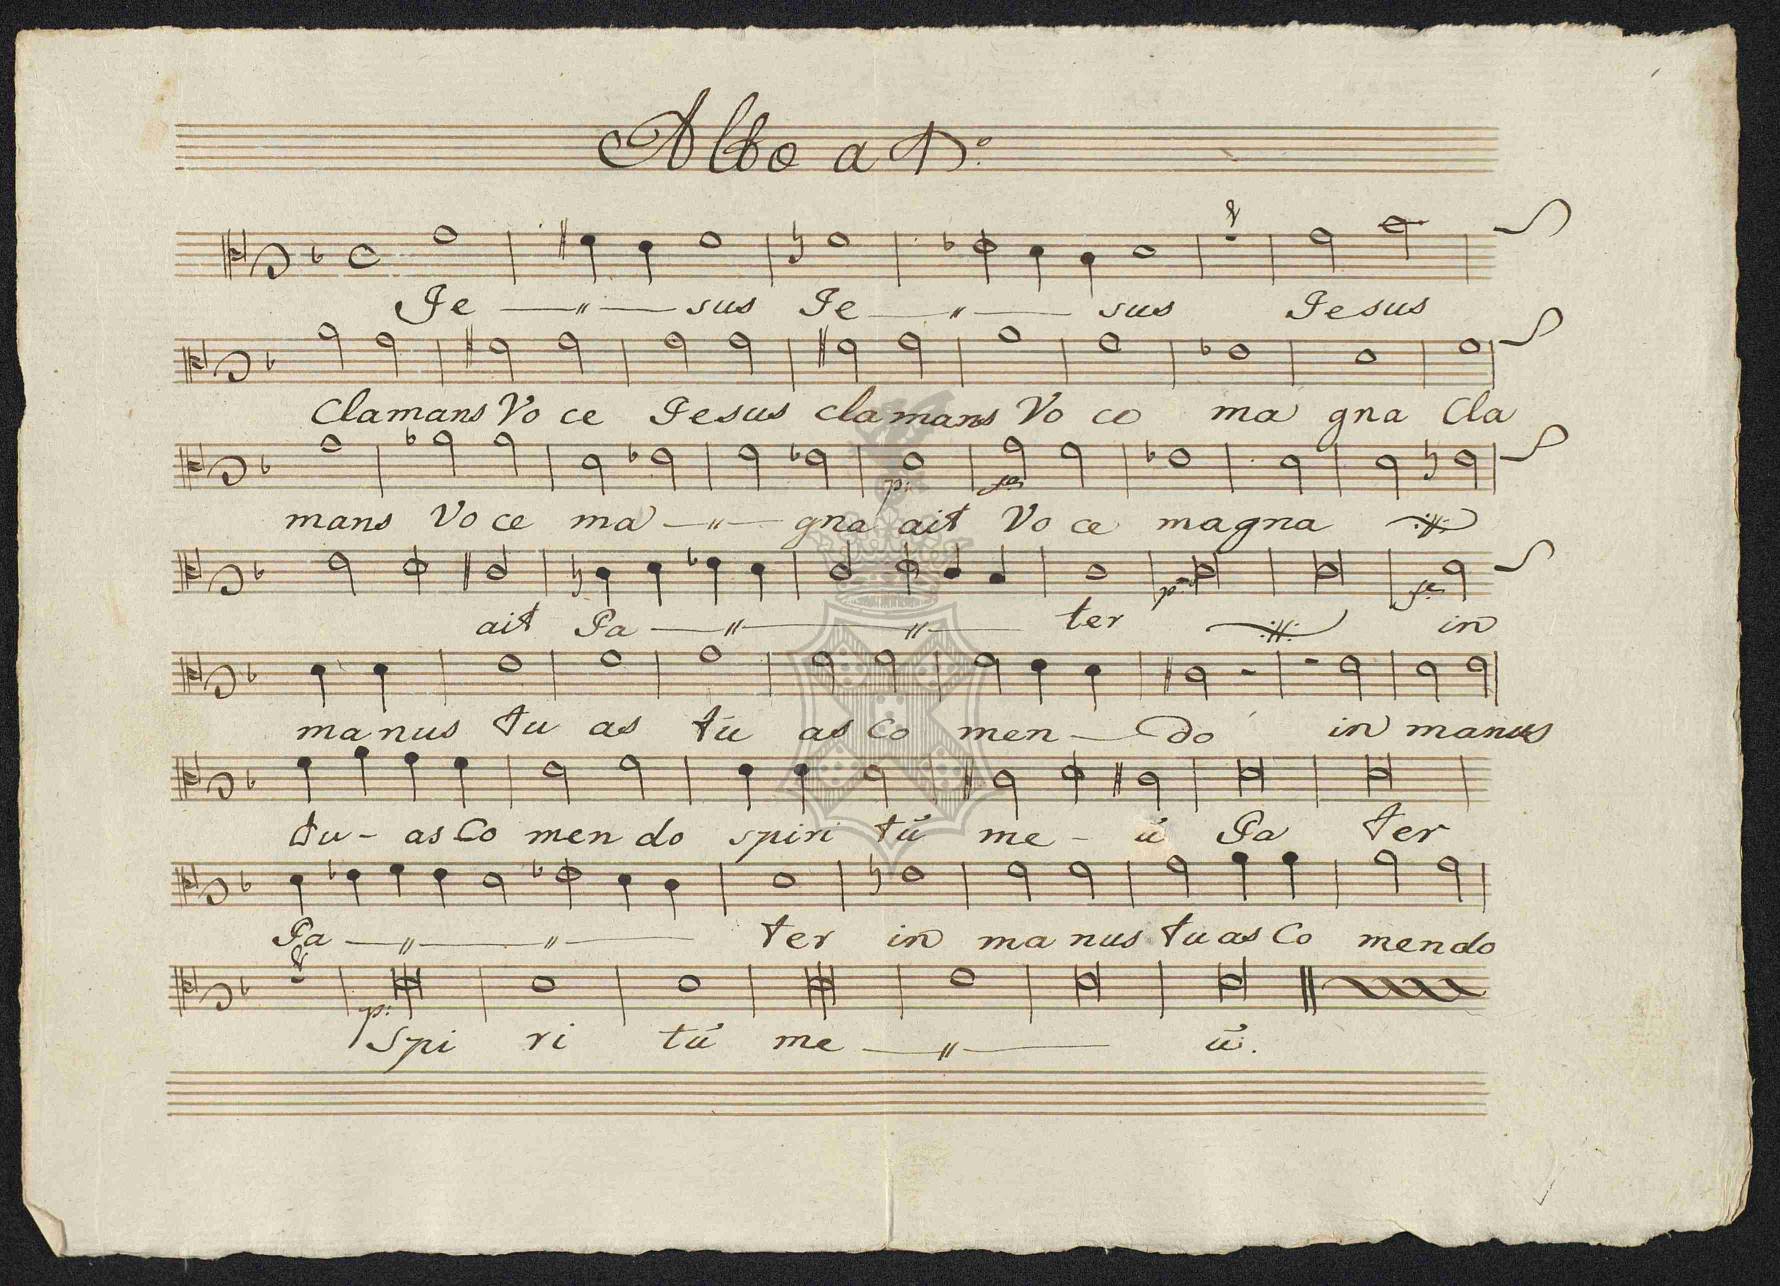 Alto a 4º
Je sus Je sus Jesus
Clamans Vo ce Jesus clamans Vo ce ma gna Cla
mans Vo ce ma gna ait Vo ce magna
p: fe
ait Pa ter in
manus tu as tú as Co men do in manus
tu - as Co men do spiri tū me - ū Pa ter
Pa ter in ma nus tu as Co mendo
p:
Spi ri tū me ū.